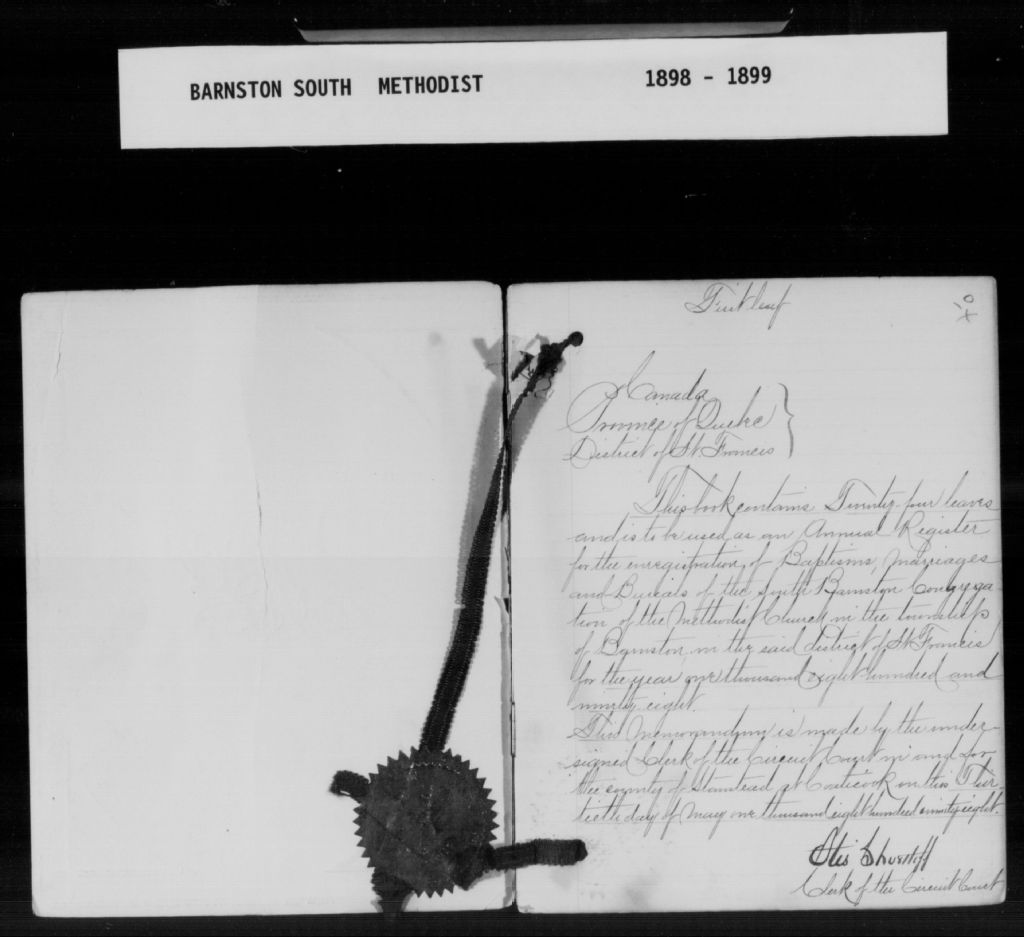 BARNSTON SOUTH METHODIST 1898 - 1899
First leaf
Canada
Province of Quebec
District of St. Francis
This book contains Twenty four leaves
and is to be used as an Annual Register
for the enregistration of Baptisms, Marriages
and Burials of the South Barnston Congrega-
tion of the Methodist Church in the township
of Barnston in the said district of St. Francis
for the year one thousand eight hundred and
ninety eight.
This Memorandum is made by the under-
signed Clerk of the Circuit Court in and for
the county of Stanstead at Coaticook on this Thir-
tieth day of May one thousand eight hundred ninety eight.
Otis Shurtleff
Clerk of the Circuit Court